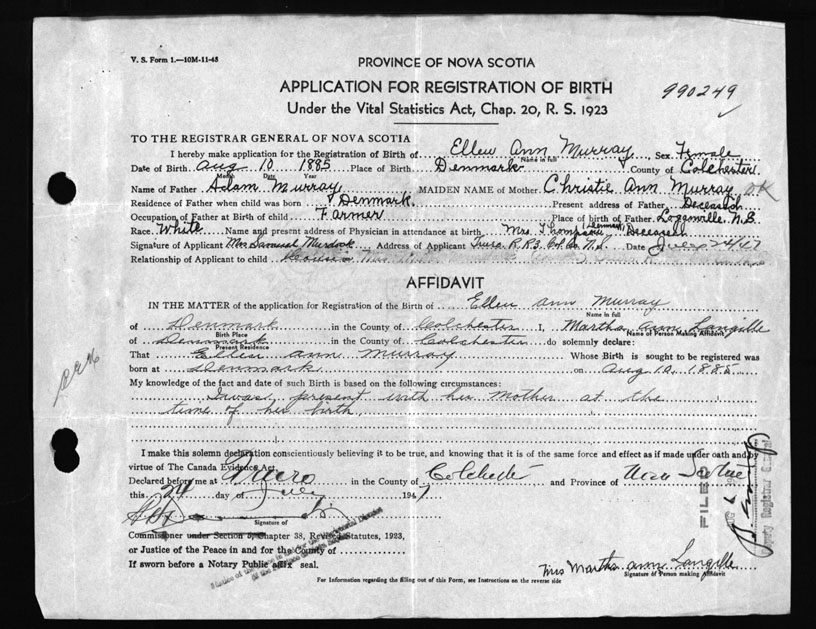 V. S. Form 1.—10M-11-45
PROVINCE OF NOVA SCOTIA
APPLICATION FOR REGISTRATION OF BIRTH
990249
Under the Vital Statistics Act, Chap. 20, R. S. 1923
TO THE REGISTRAR GENERAL OF NOVA SCOTIA
I hereby make application for the Registration of Birth of Ellen Ann Murray, Sex Female
Name in full
Date of Birth Aug 10 1885 Place of Birth Denmark County of Colchester
Month Date Year
Name of Father Adam Murray MAIDEN NAME of Mother Christie Ann Murray OK
Residence of Father when child was born Denmark. Present address of Father Deceased
Occupation of Father at Birth of child Farmer Place of birth of Father Loganville N.S.
Race White Name and present address of Physician in attendance at birth Mrs. Thompson (Denmark) Deceased
Signature of Applicant Mrs Samuel Murdock Address of Applicant Truro R.R.3. Col. Co. N.S. Date July 24/47
Relationship of Applicant to child
AFFIDAVIT
IN THE MATTER of the application for Registration of the Birth of Ellen Ann Murray
Name in full
of Denmark in the County of Colchester I, Martha Ann Langille
Birth Place Name of Person Making Affidavit
of Denmark in the County of Colchester do solemnly declare:
Present Residence
That Ellen Ann Murray Whose Birth is sought to be registered was
born at Denmark on Aug 10, 1885
My knowledge of the fact and date of such Birth is based on the following circumstances:
I was present with her Mother at the
time of her birth
I make this solemn declaration conscientiously believing it to be true, and knowing that it is of the same force and effect as if made under oath and by
virtue of The Canada Evidence Act.
Declared before me at Truro in the County of Colchester and Province of Nova Scotia
this 24 day of July 1947
Signature of
Commissioner under Section 5, Chapter 38, Revised Statutes, 1923,
or Justice of the Peace in and for the County of
If sworn before a Notary Public affix seal.
FILED
Deputy Registrar General
Mrs Martha Ann Langille
Signature of Person making Affidavit
For Information regarding the filling out of this Form, see Instructions on the reverse side